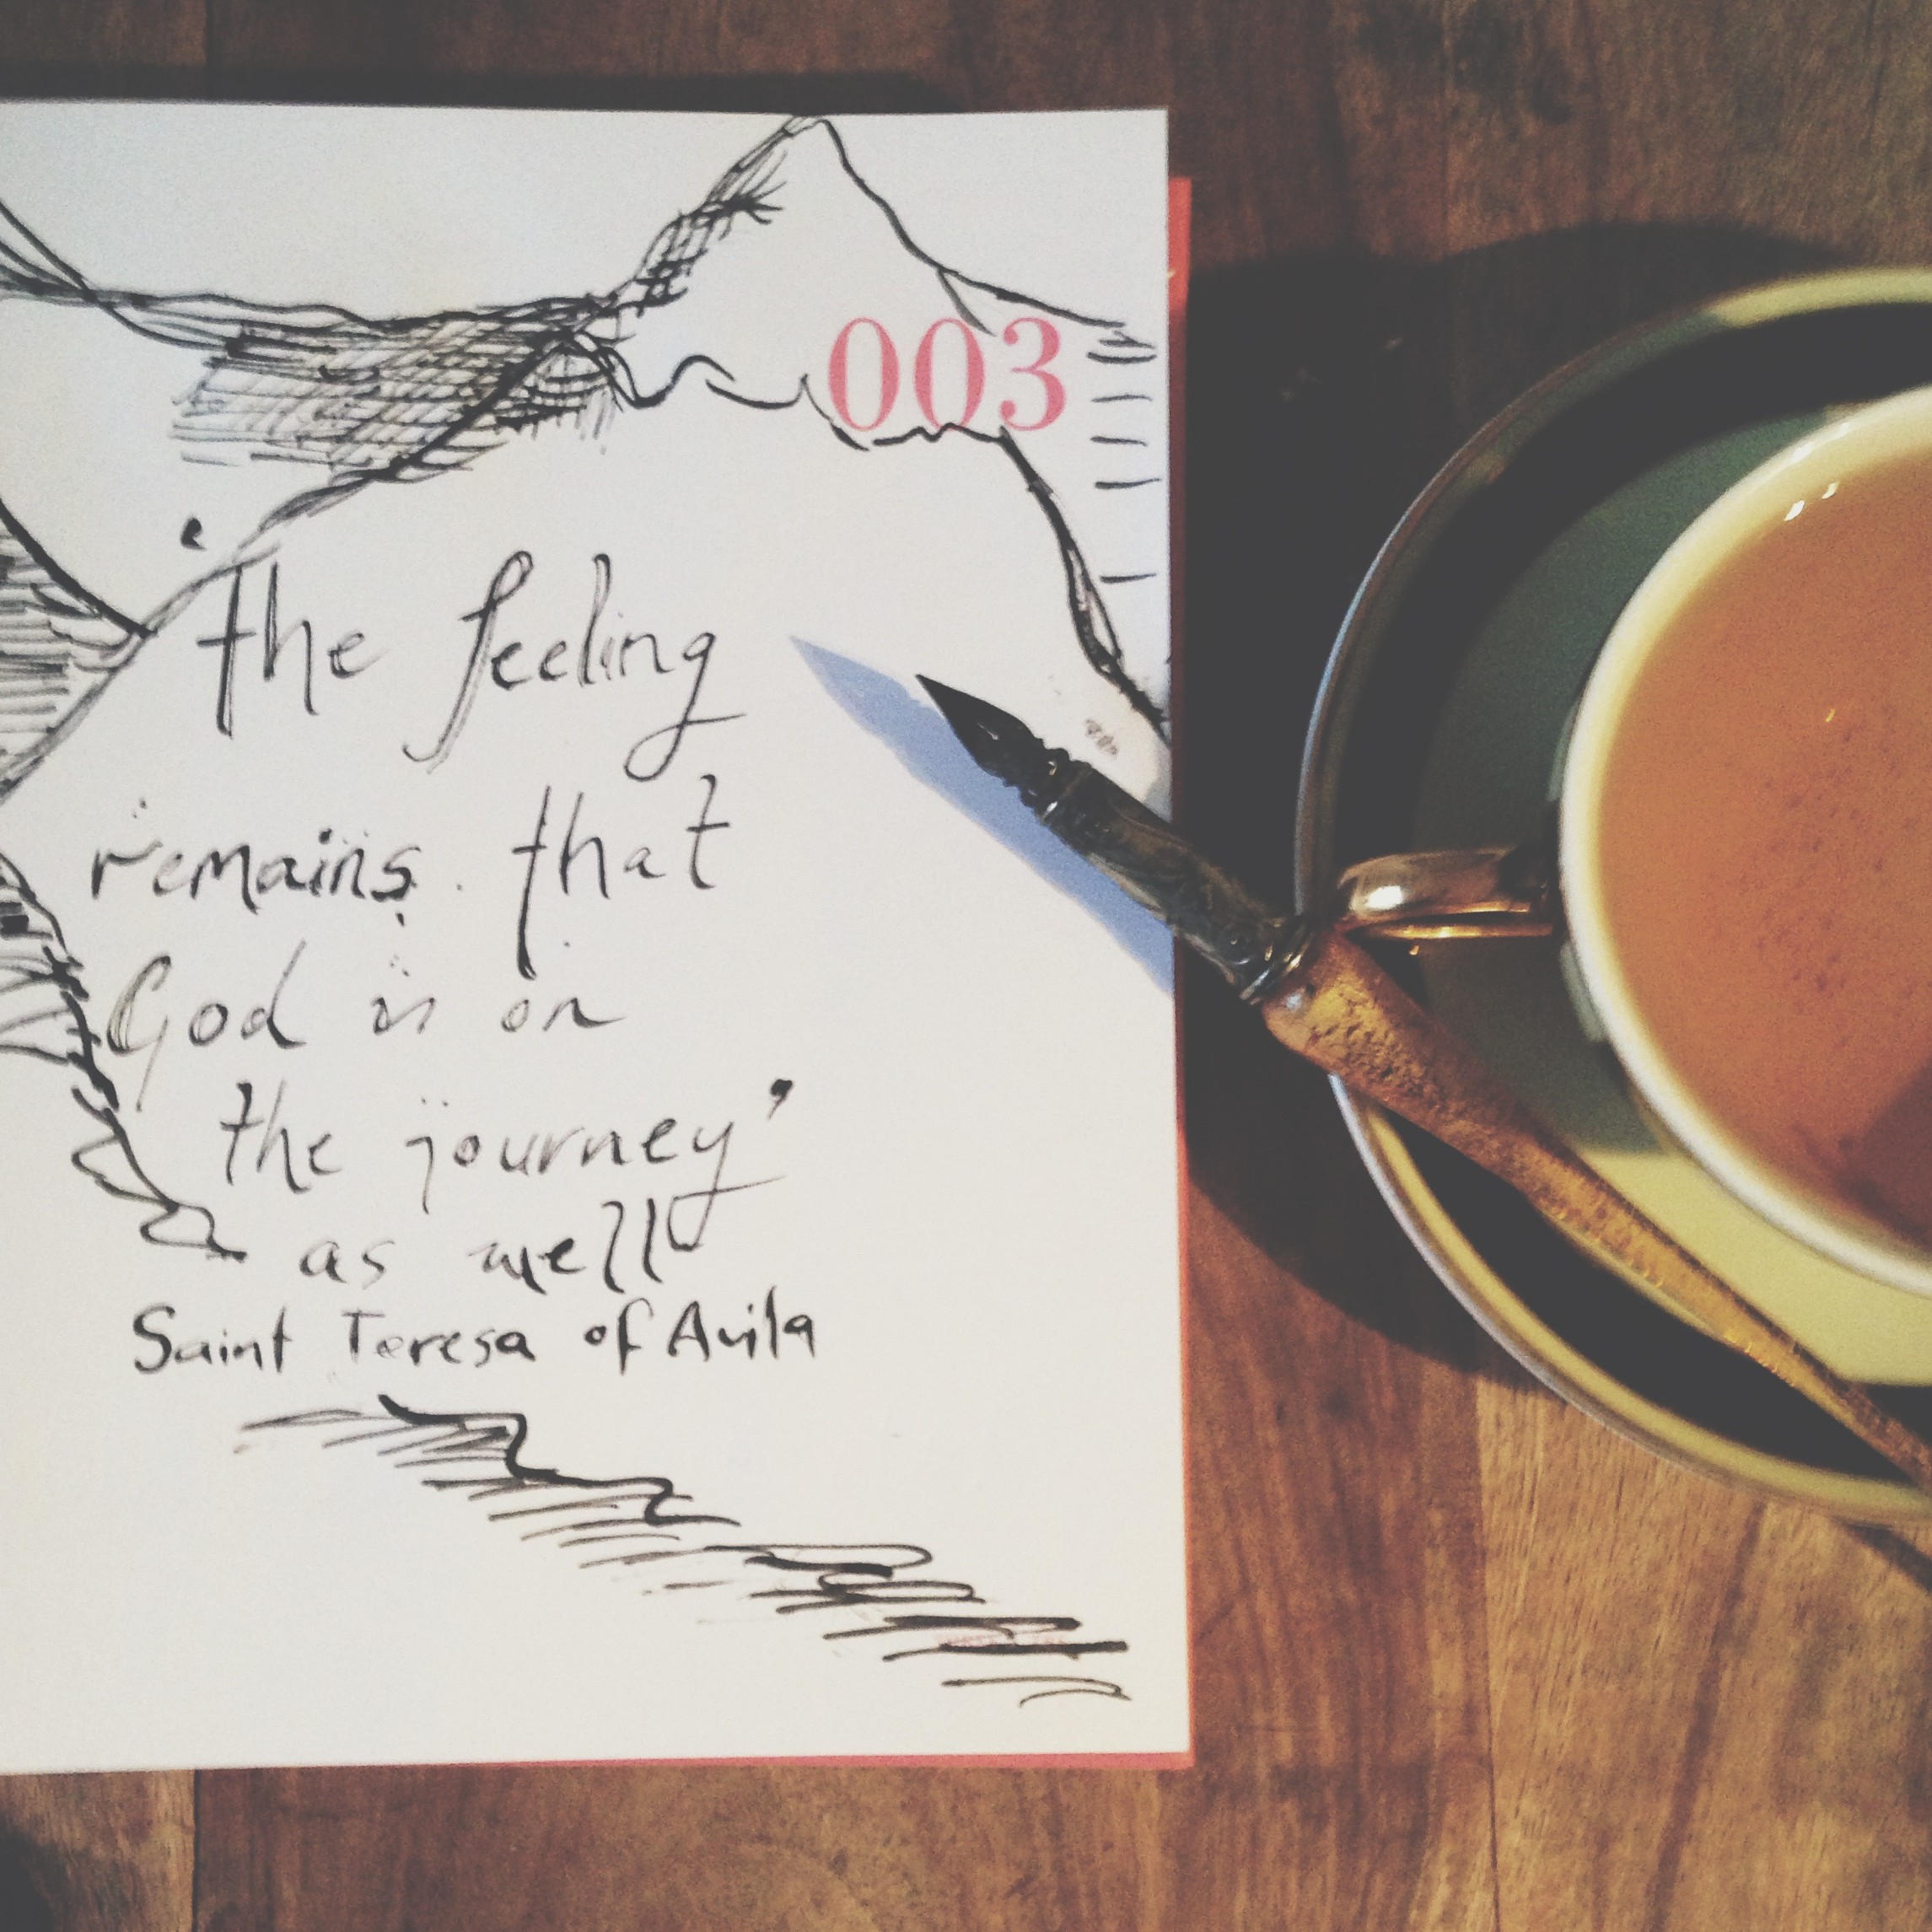 003
'the feeling
remains that
God is on
the journey'
as well
Saint Teresa of Avila